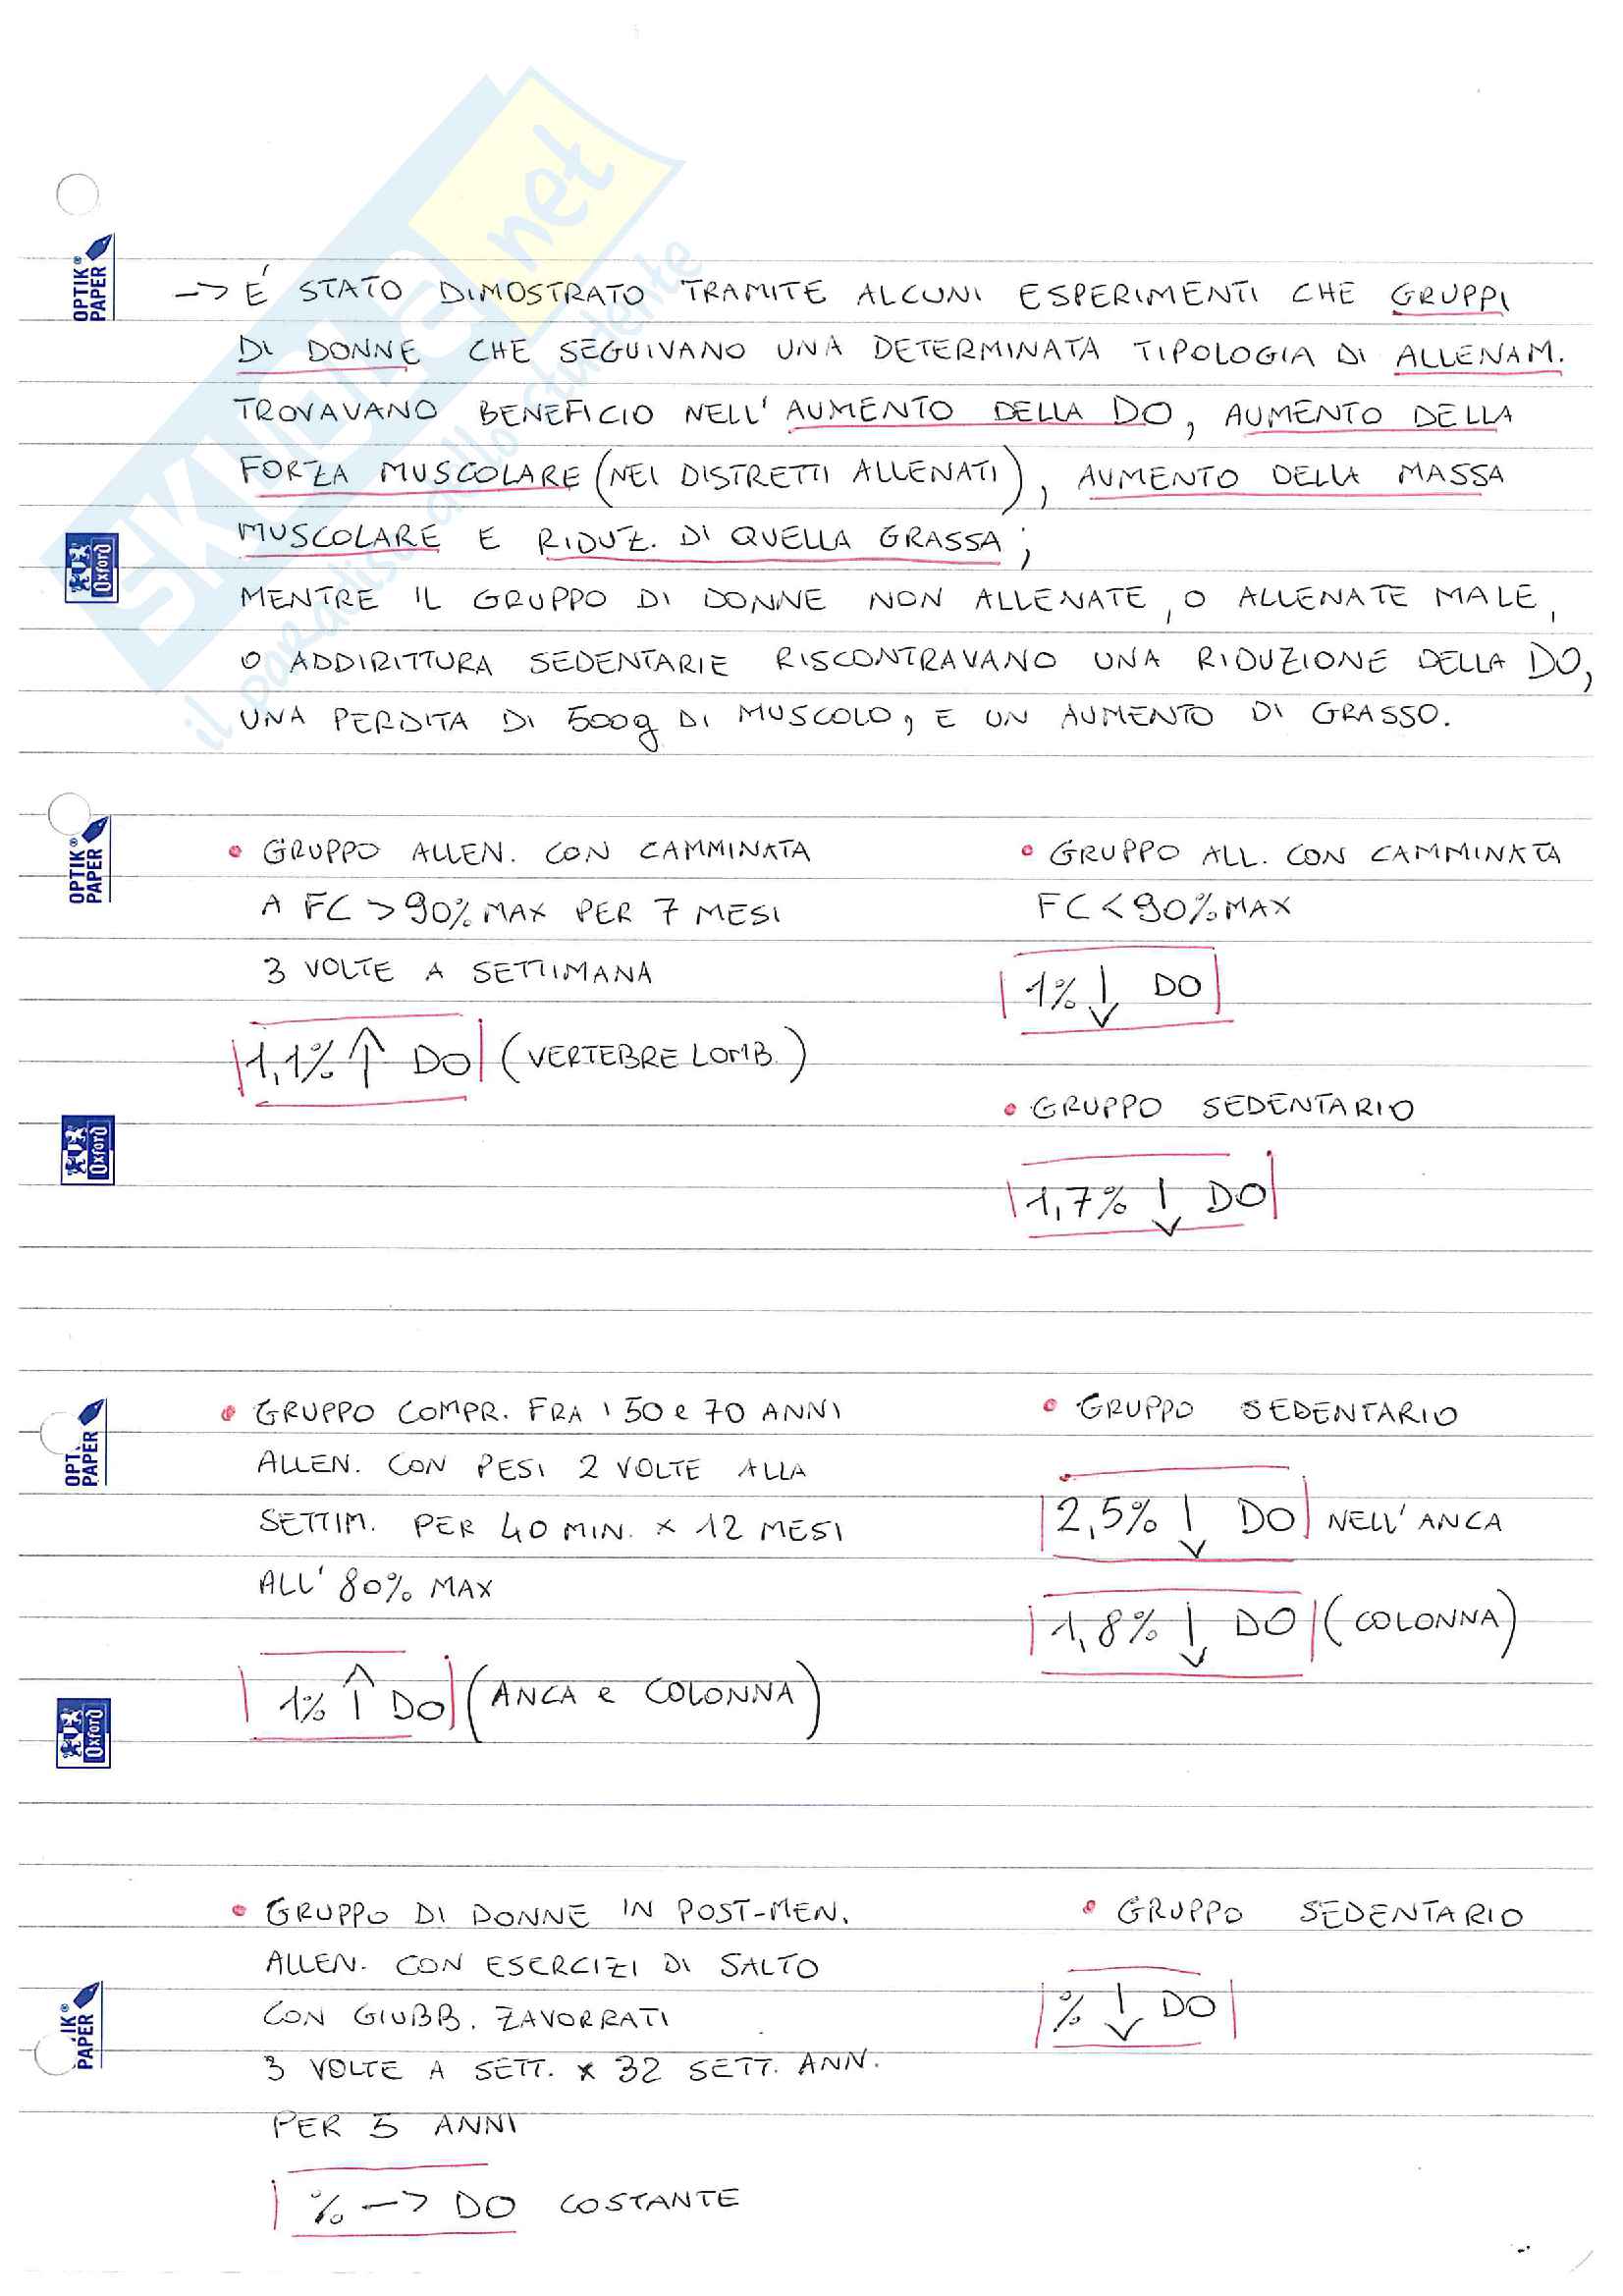 SKUOLA.net
il paradiso dello studente
OPTIK® PAPER
-> É STATO DIMOSTRATO TRAMITE ALCUNI ESPERIMENTI CHE GRUPPI
DI DONNE CHE SEGUIVANO UNA DETERMINATA TIPOLOGIA DI ALLENAM.
TROVAVANO BENEFICIO NELL' AUMENTO DELLA DO, AUMENTO DELLA
FORZA MUSCOLARE (NEI DISTRETTI ALLENATI), AUMENTO DELLA MASSA
MUSCOLARE E RIDUZ. DI QUELLA GRASSA;
Oxford
MENTRE IL GRUPPO DI DONNE NON ALLENATE, O ALLENATE MALE,
O ADDIRITTURA SEDENTARIE RISCONTRAVANO UNA RIDUZIONE DELLA DO,
UNA PERDITA DI 500g DI MUSCOLO, E UN AUMENTO DI GRASSO.
OPTIK® PAPER
• GRUPPO ALLEN. CON CAMMINATA
A FC > 90% MAX PER 7 MESI
3 VOLTE A SETTIMANA
1,1% ↑ DO (VERTEBRE LOMB.)
• GRUPPO ALL. CON CAMMINATA
FC < 90% MAX
1% ↓ DO
Oxford
• GRUPPO SEDENTARIO
1,7% ↓ DO
OPTI PAPER
• GRUPPO COMPR. FRA I 50 e 70 ANNI
ALLEN. CON PESI 2 VOLTE ALLA
SETTIM. PER 40 MIN. x 12 MESI
ALL' 80% MAX
1% ↑ DO (ANCA e COLONNA)
• GRUPPO SEDENTARIO
2,5% ↓ DO NELL' ANCA
1,8% ↓ DO (COLONNA)
Oxford
• GRUPPO DI DONNE IN POST-MEN.
ALLEN. CON ESERCIZI DI SALTO
CON GIUBB. ZAVORRATI
3 VOLTE A SETT. x 32 SETT. ANN.
PER 5 ANNI
% -> DO COSTANTE
• GRUPPO SEDENTARIO
% ↓ DO
IK® PAPER